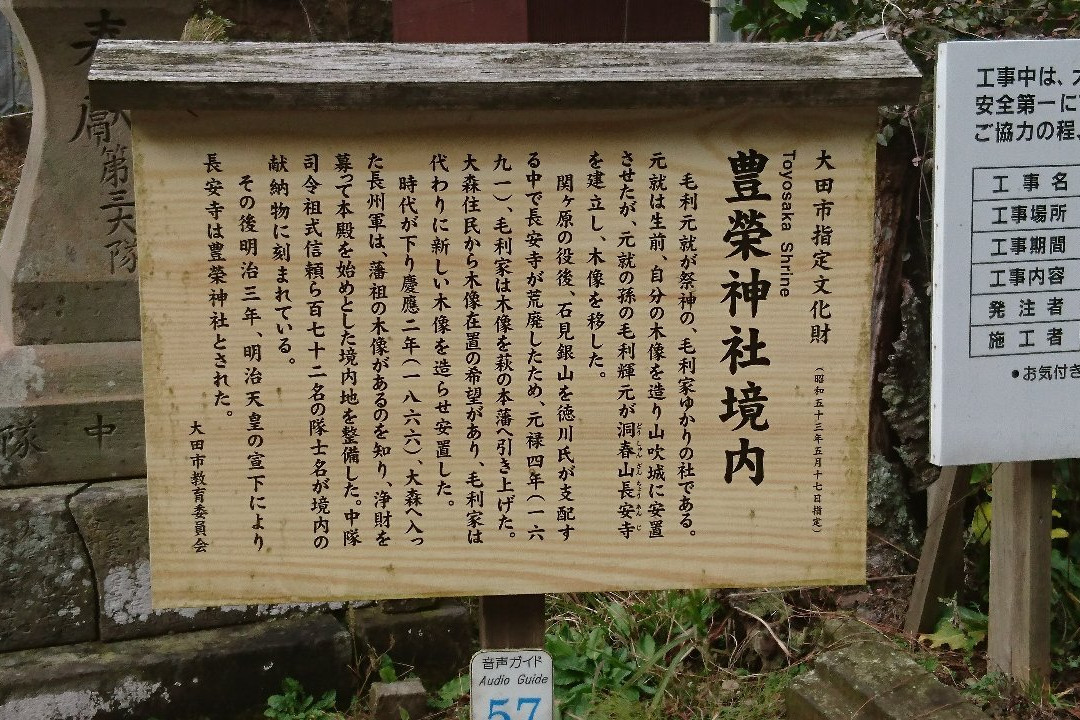 大田市指定文化財
(昭和五十三年五月十七日指定)
Toyosaka Shrine
豊榮神社境内
毛利元就が祭神の、毛利家ゆかりの社である。
元就は生前、自分の木像を造り山吹城に安置
させたが、元就の孫の毛利輝元が洞春山長安寺
どうしゅんざんちょうあんじ
を建立し、木像を移した。
関ヶ原の役後、石見銀山を徳川氏が支配す
る中で長安寺が荒廃したため、元禄四年(一六
九一)、毛利家は木像を萩の本藩へ引き上げた。
大森住民から木像在置の希望があり、毛利家は
代わりに新しい木像を造らせ安置した。
時代が下り慶應二年(一八六六)、大森へ入っ
た長州軍は、藩祖の木像があるのを知り、浄財を
募って本殿を始めとした境内地を整備した。中隊
司令祖式信頼ら百七十二名の隊士名が境内の
献納物に刻まれている。
その後明治三年、明治天皇の宣下により
長安寺は豊榮神社とされた。
大田市教育委員会
音声ガイド
Audio Guide
57
工事中は、
安全第一に
ご協力の程
工事名
工事場所
工事期間
工事内容
発注者
施工者
•お気付き
献
第三大隊
中
隊